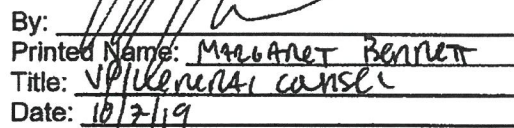 By:
Printed Name: Margaret Bennett
Title: VP/General Counsel
Date: 10/2/19